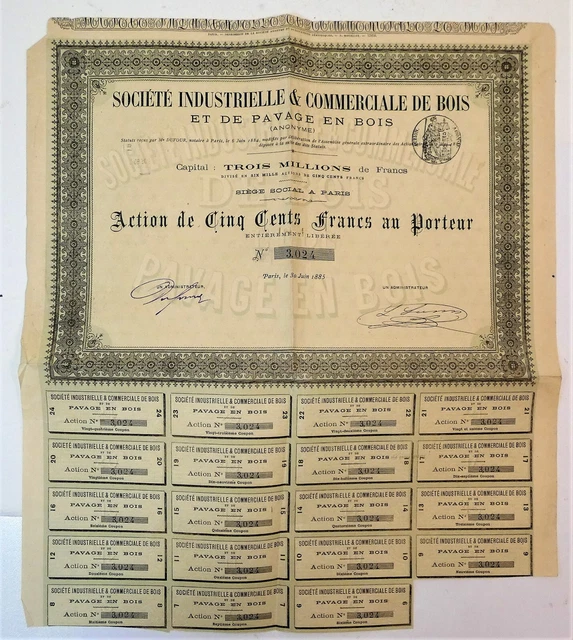 SOCIÉTÉ INDUSTRIELLE & COMMERCIALE DE BOIS
ET DE PAVAGE EN BOIS
(ANONYME)
Statuts reçus par Me DUFOUR, notaire à Paris, le 2 Juin 1884, modifiés par délibération de l'Assemblée générale extraordinaire des
Capital : TROIS MILLIONS de Francs
DIVISÉ EN SIX MILLE ACTIONS DE CINQ CENTS FRANCS
SIÈGE SOCIAL A PARIS
Action de Cinq Cents Francs au Porteur
ENTIÈREMENT LIBÉRÉE
No 3,024
Paris, le 30 Juin 1885
UN ADMINISTRATEUR
UN ADMINISTRATEUR
PAVAGE EN BOIS
24 SOCIÉTÉ INDUSTRIELLE & COMMERCIALE DE BOIS 24
ET DE
PAVAGE EN BOIS
Action No 3,024
Vingt-quatrième Coupon
23 SOCIÉTÉ INDUSTRIELLE & COMMERCIALE DE BOIS 23
ET DE
PAVAGE EN BOIS
Action No 3,024
Vingt-troisième Coupon
22 SOCIÉTÉ INDUSTRIELLE & COMMERCIALE DE BOIS 22
ET DE
PAVAGE EN BOIS
Action No 3,024
Vingt-deuxième Coupon
21 SOCIÉTÉ INDUSTRIELLE & COMMERCIALE DE BOIS 21
ET DE
PAVAGE EN BOIS
Action No 3,024
Vingt et unième Coupon
20 SOCIÉTÉ INDUSTRIELLE & COMMERCIALE DE BOIS 20
ET DE
PAVAGE EN BOIS
Action No 3,024
Vingtième Coupon
19 SOCIÉTÉ INDUSTRIELLE & COMMERCIALE DE BOIS 19
ET DE
PAVAGE EN BOIS
Action No 3,024
Dix-neuvième Coupon
18 SOCIÉTÉ INDUSTRIELLE & COMMERCIALE DE BOIS 18
ET DE
PAVAGE EN BOIS
Action No 3,024
Dix-huitième Coupon
17 SOCIÉTÉ INDUSTRIELLE & COMMERCIALE DE BOIS 17
ET DE
PAVAGE EN BOIS
Action No 3,024
Dix-septième Coupon
16 SOCIÉTÉ INDUSTRIELLE & COMMERCIALE DE BOIS 16
ET DE
PAVAGE EN BOIS
Action No 3,024
Seizième Coupon
15 SOCIÉTÉ INDUSTRIELLE & COMMERCIALE DE BOIS 15
ET DE
PAVAGE EN BOIS
Action No 3,024
Quinzième Coupon
14 SOCIÉTÉ INDUSTRIELLE & COMMERCIALE DE BOIS 14
ET DE
PAVAGE EN BOIS
Action No 3,024
Quatorzième Coupon
13 SOCIÉTÉ INDUSTRIELLE & COMMERCIALE DE BOIS 13
ET DE
PAVAGE EN BOIS
Action No 3,024
Treizième Coupon
12 SOCIÉTÉ INDUSTRIELLE & COMMERCIALE DE BOIS 12
ET DE
PAVAGE EN BOIS
Action No 3,024
Douzième Coupon
11 SOCIÉTÉ INDUSTRIELLE & COMMERCIALE DE BOIS 11
ET DE
PAVAGE EN BOIS
Action No 3,024
Onzième Coupon
10 SOCIÉTÉ INDUSTRIELLE & COMMERCIALE DE BOIS 10
ET DE
PAVAGE EN BOIS
Action No 3,024
Dixième Coupon
9 SOCIÉTÉ INDUSTRIELLE & COMMERCIALE DE BOIS 9
ET DE
PAVAGE EN BOIS
Action No 3,024
Neuvième Coupon
8 SOCIÉTÉ INDUSTRIELLE & COMMERCIALE DE BOIS 8
ET DE
PAVAGE EN BOIS
Action No 3,024
Huitième Coupon
7 SOCIÉTÉ INDUSTRIELLE & COMMERCIALE DE BOIS 7
ET DE
PAVAGE EN BOIS
Action No 3,024
Septième Coupon
6 SOCIÉTÉ INDUSTRIELLE & COMMERCIALE DE BOIS 6
ET DE
PAVAGE EN BOIS
Action No 3,024
Sixième Coupon